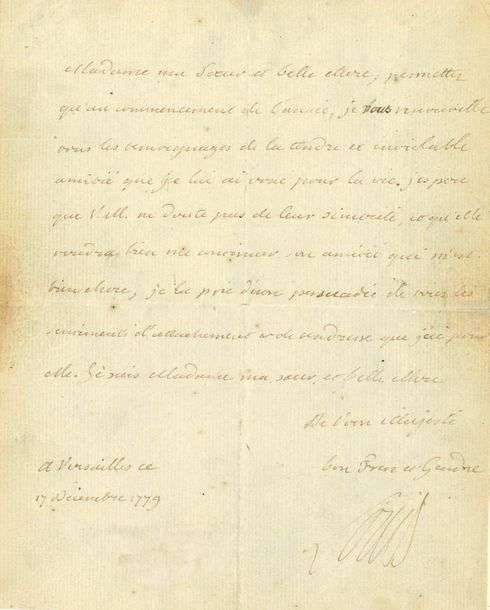 Madame ma Sœur et belle Mere, permettez
qu'au commencement de l'année, je vous renouvelle
tous les temoignages de la tendre et inviolable
amitié que je lui ai voué pour la vie. j'espere
que V. M. ne doute pas de leur sincerité, et qu'elle
voudra bien me continuer son amitié qui m'est
bien chere, je la prie d'etre persuadée de tous les
sentiments d'attachement et de tendresse que j'ai pour
elle. Je suis Madame ma sœur, et belle Mere
De Votre Majesté
A Versailles ce
17 Decembre 1779
bon Frere et Gendre
Louis